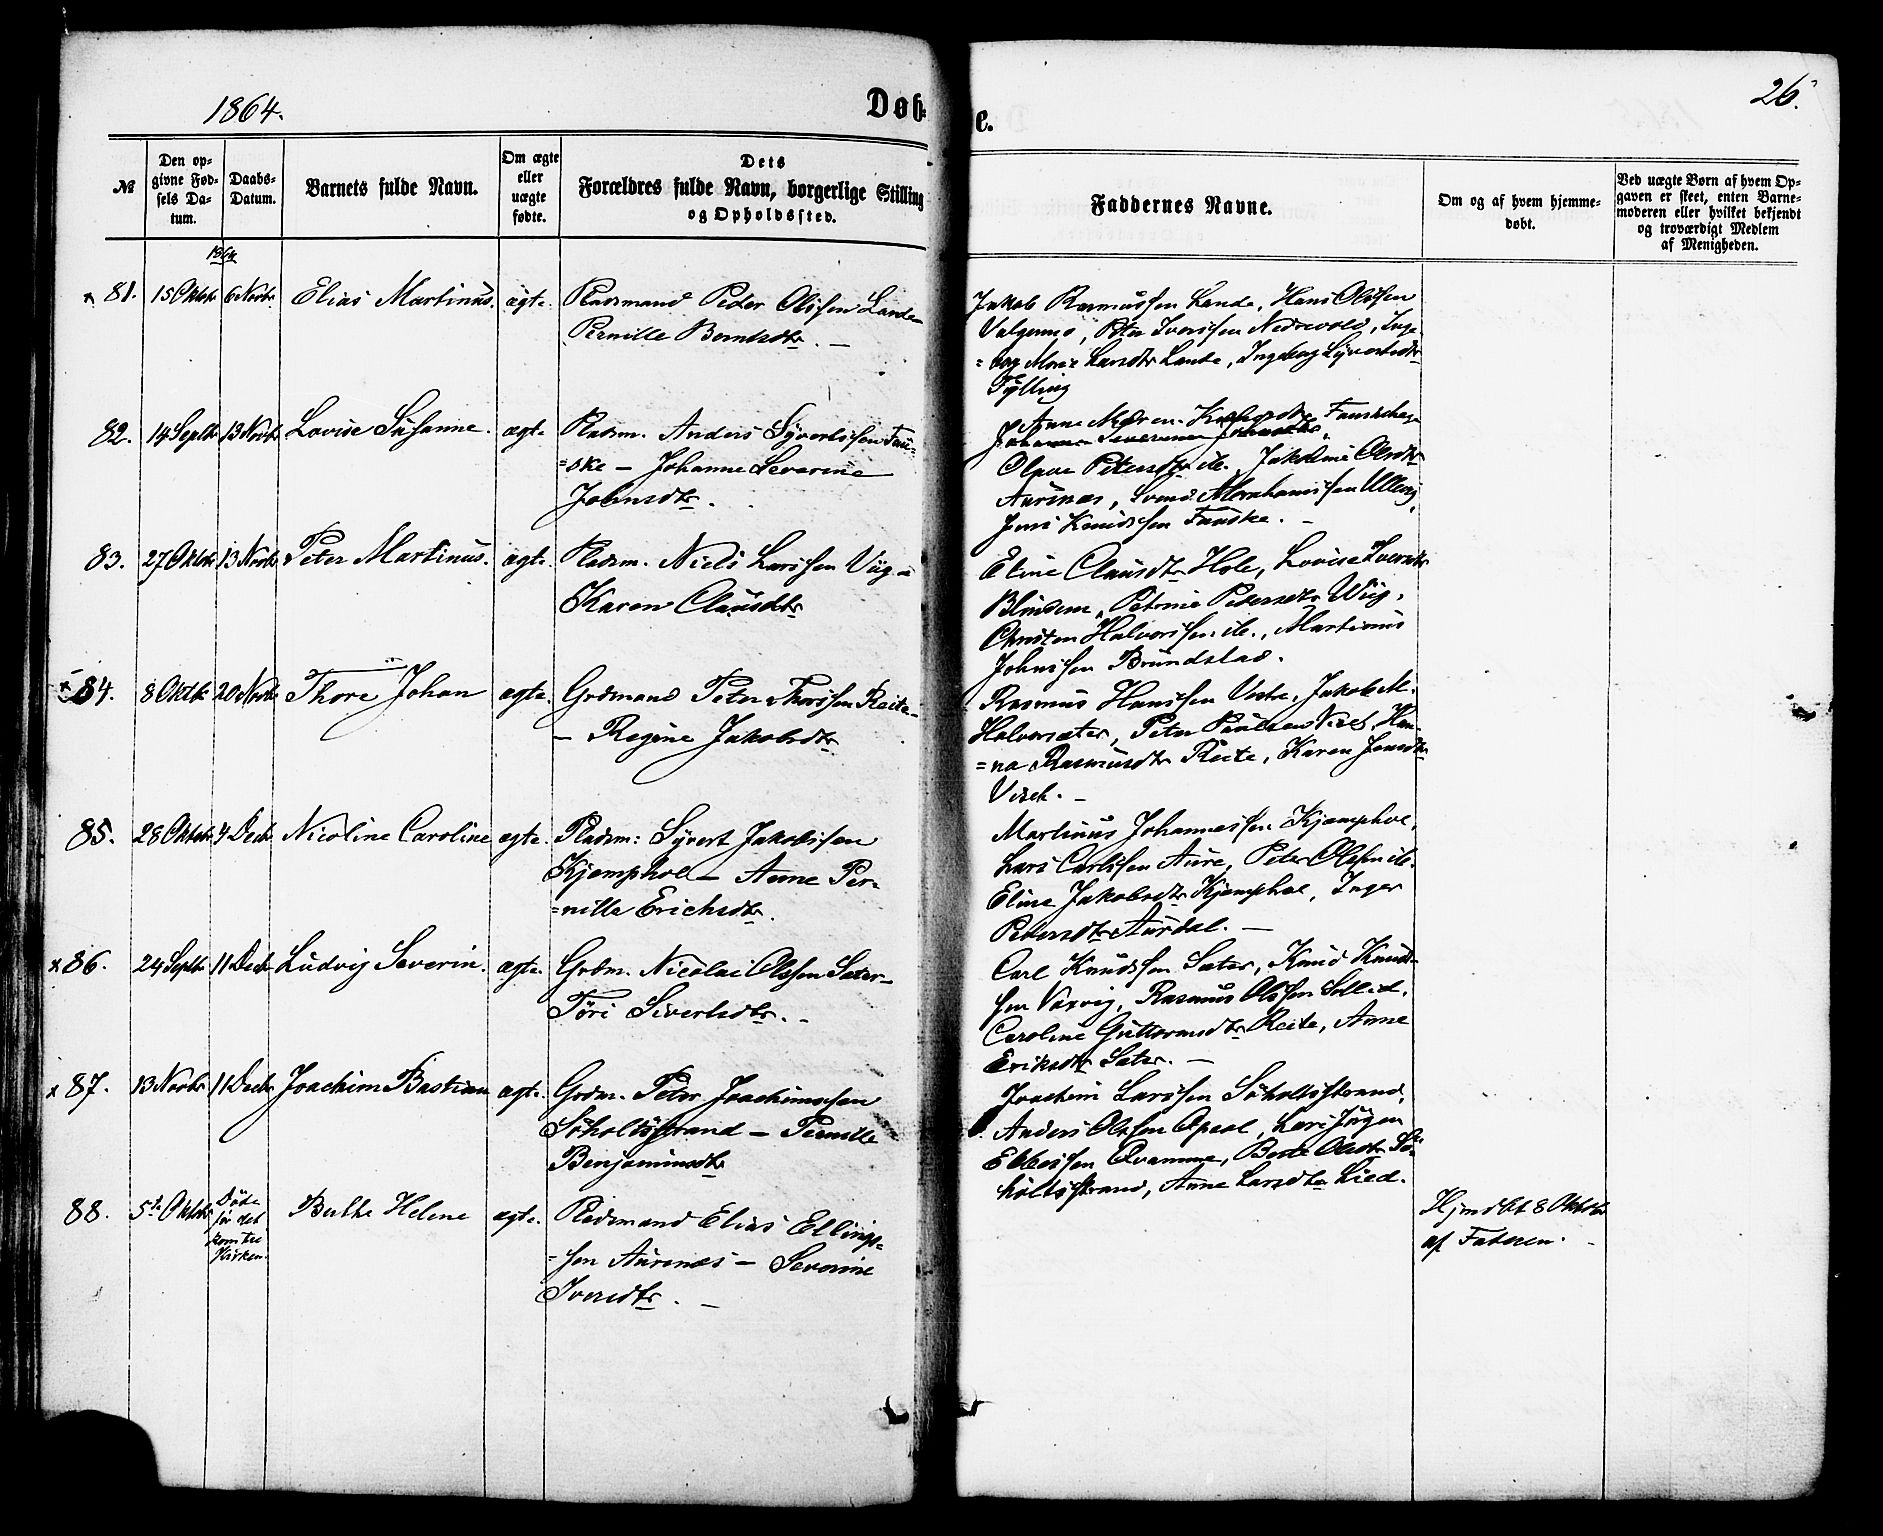 1864.
Døb-
e.
26.
No
Den op-
givne Fød-
sels Da-
tum.
Daabs-
Datum.
Barnets fulde Navn.
Om ægte
eller
uægte
fødte.
Dets
Forældres fulde Navn, borgerlige Stilling
og Opholdssted.
Faddernes Navne.
Om og af hvem hjemme-
døbt.
Ved uægte Børn af hvem Op-
gaven er skeet, enten Barne-
moderen eller hvilket bekjendt
og troværdigt Medlem
af Menigheden.
1864
x 81. 15 Oktobr 6 Novbr Elias Martinus. ægte. Pladsmand Peder Olssen Lande-
Pernille Berntsdtr. —
Jakob Rasmussen Lande, Hans Olssen
Valgermo, Peter Iverssen Nedrevold, Inge-
=borg Marie Larsdtr Lande, Ingeborg Syvertsdtr
Tylling
82. 14 Septbr 13 Novbr Lovise Susanne. ægte. Pladsm. Anders Syvertssen Fau-
=ske — Johanne Severine
Johnsdtr.
Anne Maren
Johanne Severine Johnsdtr,
Olave Petersdtr ib. Jakobine Olsdtr
Aurenæs, Svend Abrahamssen Ulling,
Jens Knudssen Fauske. —
83. 27 Oktobr 13 Novbr Peter Martinus. ægte. Pladsm. Niels Larssen Viig —
Karen Clausdtr
Eline Clausdtr Hole, Lovise Iversdtr
Blindem, Petrine Petersdtr Wiig,
Christen Halvorssen ib., Martinus
Johnssen Brundstad.
x 84. 8 Oktbr 20 Novbr Thore Johan ægte. Grdmand Peter Thorssen Reite-
— Regine Jakobsdtr
Rasmus Hanssen Vestre, Jakob M.
Halvorsæter, Peter Paulsen Viset, Han-
=na Rasmusdtr Reite, Karen Jensdtr
Viset. —
85. 28 Oktobr 4 Decbr Nicoline Caroline ægte. Pladsm: Syvert Jakobssen
Kjemphol — Anne Per-
=nille Erichsdtr.
Martinus Johannessen Kjemphol,
Lars Carlssen Aure, Peter Olssen ib.
Eline Jakobsdtr Kjemphol, Inger
Pedersdtr Aurdal. —
x 86. 24 Septbr 11 Decbr Ludvig Severin. ægte. Grdm. Nicolai Olssen Sæter-
Töri Sivertsdtr. —
Carl Knudssen Sæter, Knud Knud-
sen Vaxvig, Rasmus Olssen Sollid,
Caroline Guttormsdtr Reite, Anne
Eriksdtr Sæter. —
x 87. 13 Novbr 11 Decbr Joachim Bastian ægte. Grdm. Peter Joachimssen
Söholtsstrand — Pernille
Benjaminsdtr
Joachim Larssen Söholtsstrand,
Anders Olssen Apsal, Lars Jörgen
Ebbessen Qvamme, Berte Olsdtr Sö-
holtsstrand, Anne Larsdtr Lied.
88. 5te Oktobr Döde
för det
kom til
Kirken. Bulke Helene ægte. Pladsmand Elias Ellings-
=sen Aurenæs — Severine
Iversdtr. —
Hjmdbt 8 Oktobr
af Faderen.